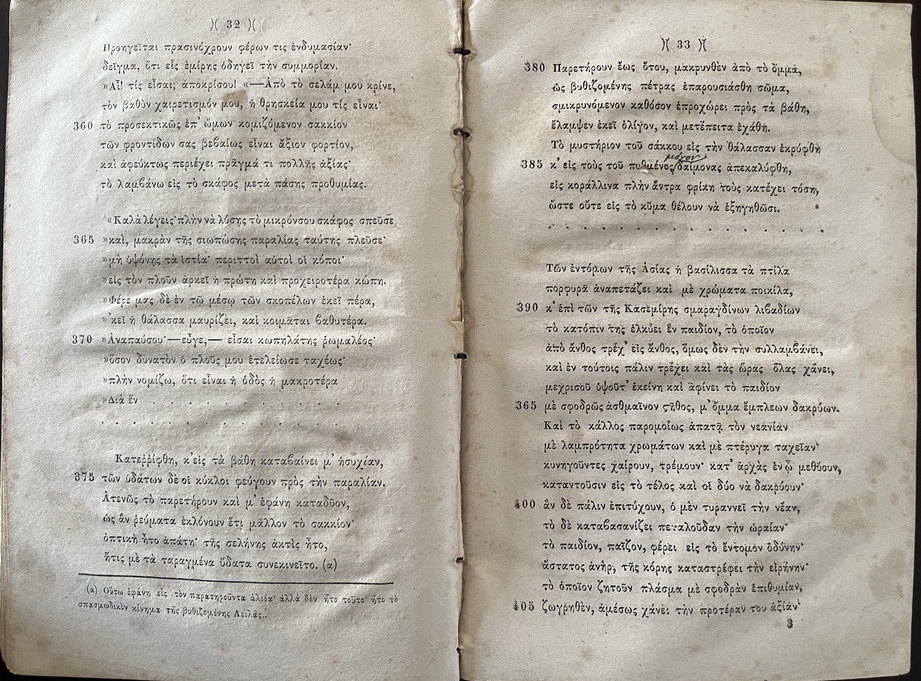 )( 32 )(
Προηγεῖται πρασινόχρουν φέρων τις ἐνδυμασίαν·
δεῖγμα, ὅτι εἰς ἐμίρης ὁδηγεῖ τὴν συμμορίαν.
»Αἴ! τίς εἶσαι; ἀποκρίσου! «—Ἀπὸ τὸ σελάμ μου κρίνε,
τὸν βαθὺν χαιρετισμόν μου, ἡ θρησκεία μου τίς εἶναι·
360 τὸ προσεκτικῶς ἐπ' ὤμων κομιζόμενον σακκίον
τῶν φροντίδων σας βεβαίως εἶναι ἄξιον φορτίον,
καὶ ἀφεύκτως περιέχει πρᾶγμά τι πολλῆς ἀξίας·
τὸ λαμβάνω εἰς τὸ σκάφος μετὰ πάσης προθυμίας.
«Καλὰ λέγεις· πλὴν νὰ λύσῃς τὸ μικρόν σου σκάφος σπεῦσε,
365 »καὶ, μακρὰν τῆς σιωπώσης παραλίας ταύτης πλεῦσε·
»μὴ ὑψόνῃς τὰ ἱστία· περιττοὶ αὐτοὶ οἱ κόποι·
»εἰς τὸν πλοῦν ἀρκεῖ ἡ πρώτη καὶ προχειροτέρα κώπη.
»Φέρε μας δὲ ἐν τῷ μέσῳ τῶν σκοπέλων ἐκεῖ πέρα,
»'κεῖ ἡ θάλασσα μαυρίζει, καὶ κοιμᾶται βαθυτέρα.
370 »Ἀναπαύσου·—εὖγε,— εἶσαι κωπηλάτης ῥωμαλέος·
»ὅσον δυνατὸν ὁ πλοῦς μου ἐτελείωσε ταχέως·
»πλὴν νομίζω, ὅτι εἶναι ἡ ὁδὸς ἡ μακροτέρα
»Διὰ ἓν . . . . . . . . . . . . . . .
. . . . . . . . . . . . . . . . . .
Κατεῤῥίφθη, κ' εἰς τὰ βάθη καταβαίνει μ' ἡσυχίαν,
375 τῶν ὑδάτων δὲ οἱ κύκλοι φεύγουν πρὸς τὴν παραλίαν.
Ἀτενῶς τὸ παρετήρουν καὶ μ' ἐφάνη καταδῦον,
ὡς ἂν ῥεύματα ἐκλόνουν ἔτι μᾶλλον τὸ σακκίον·
ὀπτικὴ ἦτο ἀπάτη· τῆς σελήνης ἀκτὶς ἦτο,
ἥτις μὲ τὰ ταραγμένα ὕδατα συνεκινεῖτο. (α)
(α) Οὕτω ἐφάνη εἰς τὸν παρατηροῦντα ἁλιέα· ἀλλὰ δὲν ἦτο τοῦτο· ἦτο τὸ
σπασμωδικὸν κίνημα τῆς βυθιζομένης Λεϊλᾶς.
)( 33 )(
380 Παρετήρουν ἕως ὅτου, μακρυνθὲν ἀπὸ τὸ ὄμμα,
ὡς βυθιζομένης πέτρας ἐπαρουσιάσθη σῶμα,
σμικρυνόμενον καθόσον ἐπροχώρει πρὸς τὰ βάθη,
ἔλαμψεν ἐκεῖ ὀλίγον, καὶ μετέπειτα ἐχάθη.
Τὸ μυστήριον τοῦ σάκκου εἰς τὴν θάλασσαν ἐκρύφθη
μόνον
385 κ' εἰς τοὺς τοῦ πυθμένος δαίμονας ἀπεκαλύφθη,
εἰς κοράλλινα πλὴν ἄντρα φρίκη τοὺς κατέχει τόση,
ὥστε οὔτε εἰς τὸ κῦμα θέλουν νὰ ἐξηγηθῶσι.
. . . . . . . . . . . . . . . . . .
Τῶν ἐντόμων τῆς Ἀσίας ἡ βασίλισσα τὰ πτίλα
πορφυρᾶ ἀναπετάζει καὶ μὲ χρώματα ποικίλα,
390 κ' ἐπὶ τῶν τῆς Κασεμίρης σμαραγδίνων λιβαδίων
τὸ κατόπιν της ἑλκύει ἓν παιδίον, τὸ ὁποῖον
ἀπὸ ἄνθος τρέχ' εἰς ἄνθος, ὅμως δὲν τὴν συλλαμβάνει,
καὶ ἐν τούτοις πάλιν τρέχει καὶ τὰς ὥρας ὅλας χάνει,
μεχρισοῦ ὑψοῦτ' ἐκείνη καὶ ἀφίνει τὸ παιδίον
365 μὲ σφοδρῶς ἀσθμαῖνον στῆθος, μ' ὄμμα ἔμπλεων δακρύων.
Καὶ τὸ κάλλος παρομοίως ἀπατᾷ τὸν νεανίαν
μὲ λαμπρότητα χρωμάτων καὶ μὲ πτέρυγα ταχεῖαν·
κυνηγοῦντες χαίρουν, τρέμουν· κατ' ἀρχὰς ἐν ᾧ μεθύουν,
καταντοῦσιν εἰς τὸ τέλος καὶ οἱ δύο νὰ δακρύουν·
400 ἂν δὲ πάλιν ἐπιτύχουν, ὁ μὲν τυραννεῖ τὴν νέαν,
τὸ δὲ καταβασανίζει πεταλοῦδαν τὴν ὡραίαν·
τὸ παιδίον, παῖζον, φέρει εἰς τὸ ἔντομον ὀδύνην·
ἄστατος ἀνὴρ, τῆς κόρης καταστρέφει τὴν εἰρήνην·
τὸ ὁποῖον ζητοῦν πλάσμα μὲ σφοδρὰν ἐπιθυμίαν,
405 ζωγρηθὲν, ἀμέσως χάνει τὴν προτέραν του ἀξίαν·
3